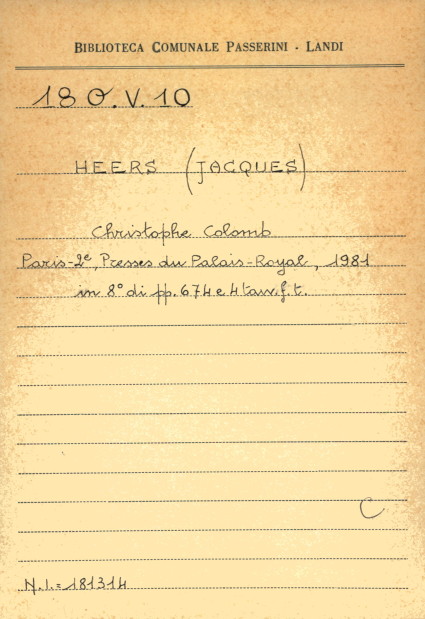 BIBLIOTECA COMUNALE PASSERINI - LANDI
18 O.V.10
HEERS (JACQUES)
Christophe Colomb
Paris-2e, Presses du Palais-Royal, 1981
in 8° di pp. 674 e 4 tav. f. t.
C
N.I. = 181314